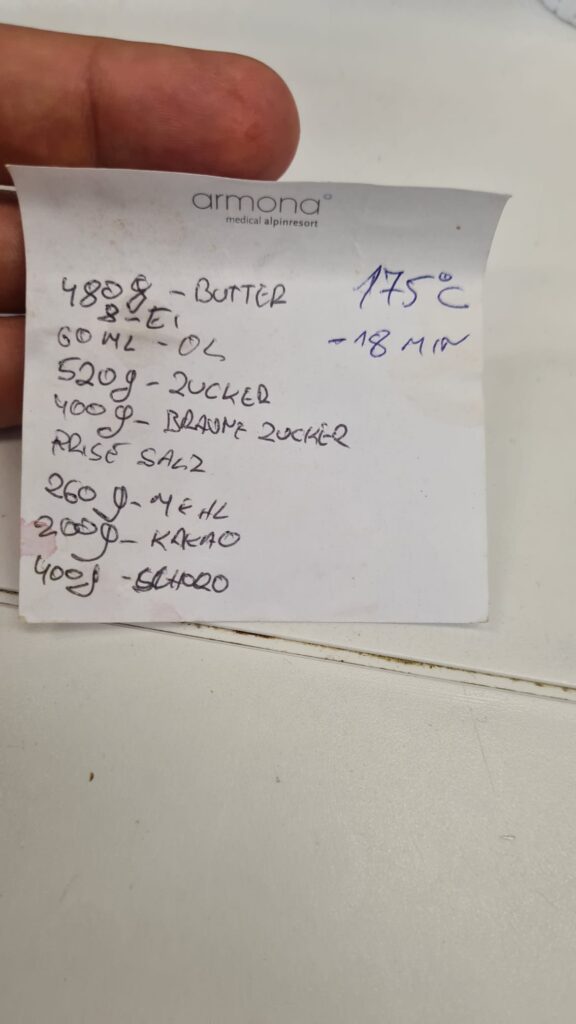 armona°
medical alpinresort
480g - BUTTER
8 - EI
60 ML - ÖL
520g - ZUCKER
400g - BRAUNE ZUCKER
PRISE SALZ
260g - MEHL
200g - KAKAO
400g - SCHOKO
175°C
- 18 MIN